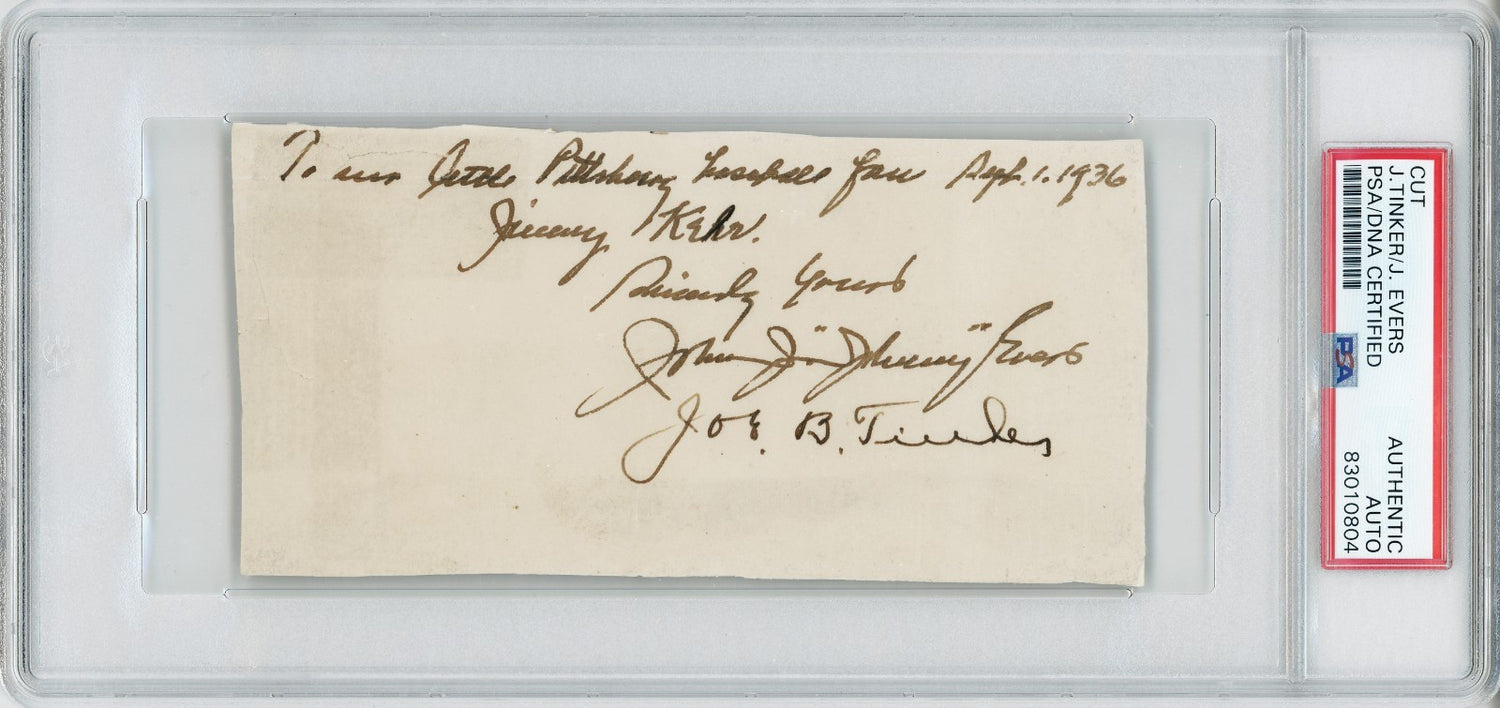 To our little Pittsburg baseball fan Sept. 1. 1936
Jimmy Kehr.
Sincerely Yours
John J "Johnny" Evers
Joe. B. Tinker
CUT
J.TINKER/J. EVERS
PSA/DNA CERTIFIED
PSA
AUTHENTIC
AUTO
83010804